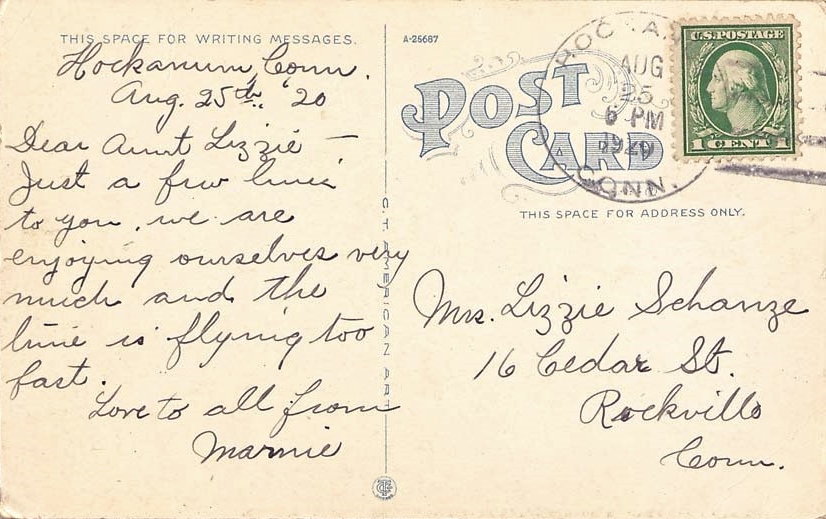 THIS SPACE FOR WRITING MESSAGES.
Hockanum, Conn.
Aug. 25th, '20
Dear Aunt Lizzie —
Just a few lines
to you, we are
enjoying ourselves very
much and the
time is flying too
fast.
Love to all from
Mamie
C.T. AMERICAN ART
A-25687
POST
CARD
AUG
25
6 PM
1920
CONN.
U.S. POSTAGE
1 CENT 1
THIS SPACE FOR ADDRESS ONLY.
Mrs. Lizzie Schanze
16 Cedar St.
Rockville
Conn.